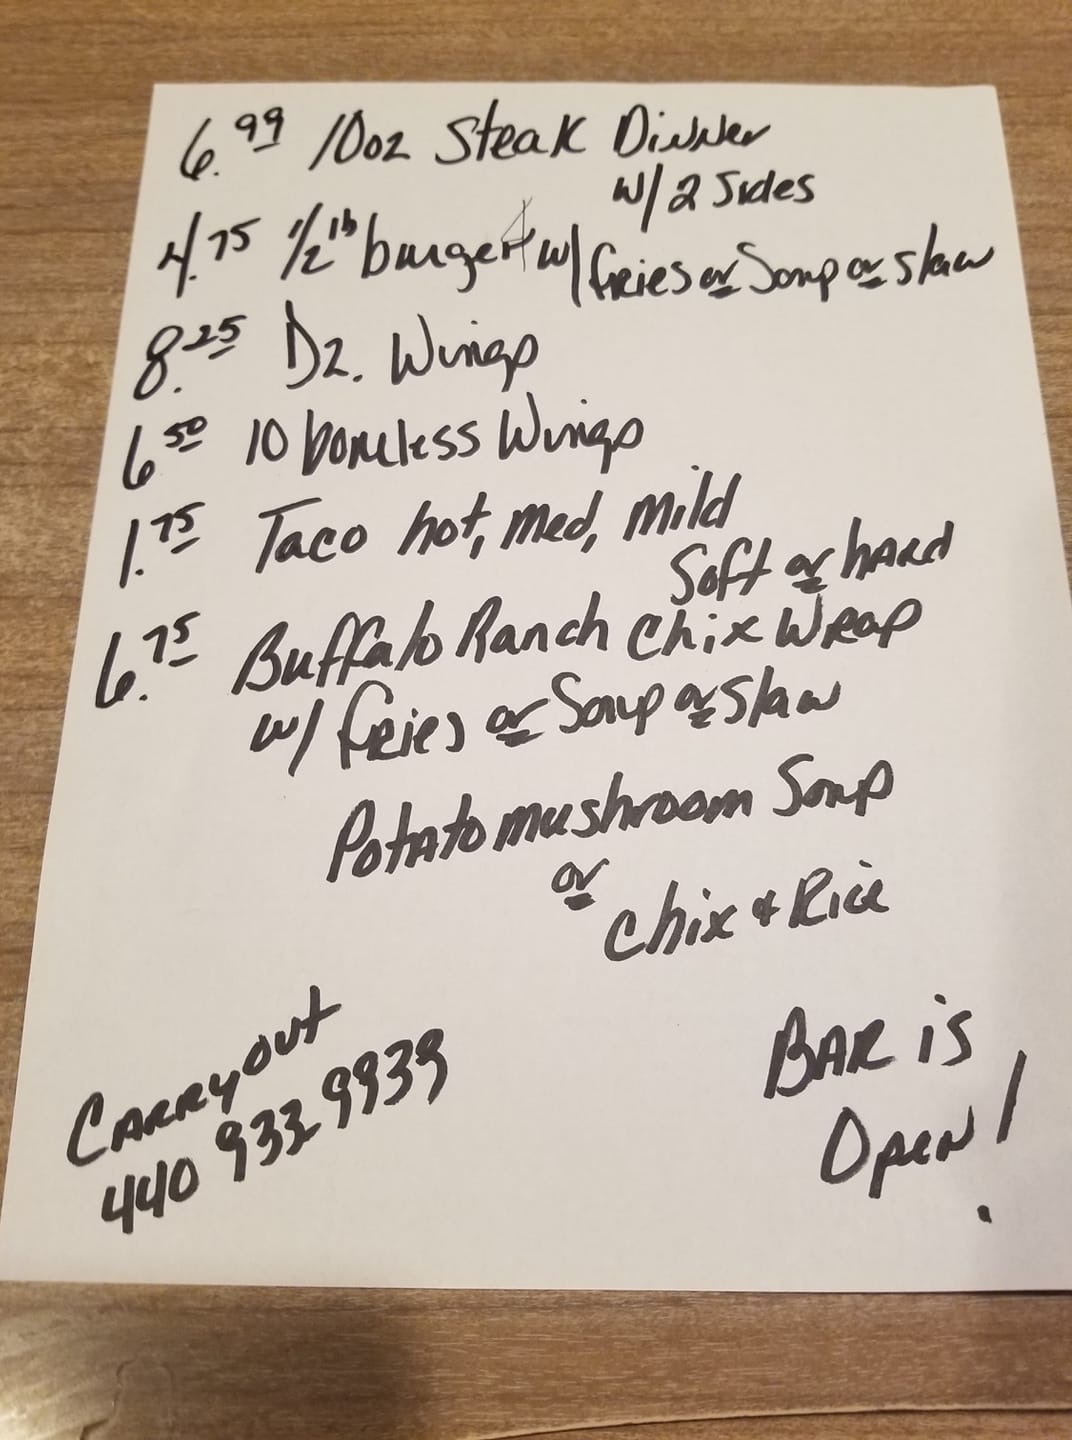 6.99 10oz Steak Dinner
w/ 2 Sides
4.75 1/2 lb burger w/ fries or Soup or slaw
8.25 Dz. Wings
6.50 10 boneless Wings
1.75 Taco hot, med, mild
Soft or hard
6.75 Buffalo Ranch Chix Wrap
w/ fries or Soup or Slaw
Potato mushroom Soup
or
Chix & Rice
Carryout
440 933 9939
BAR is
Open!